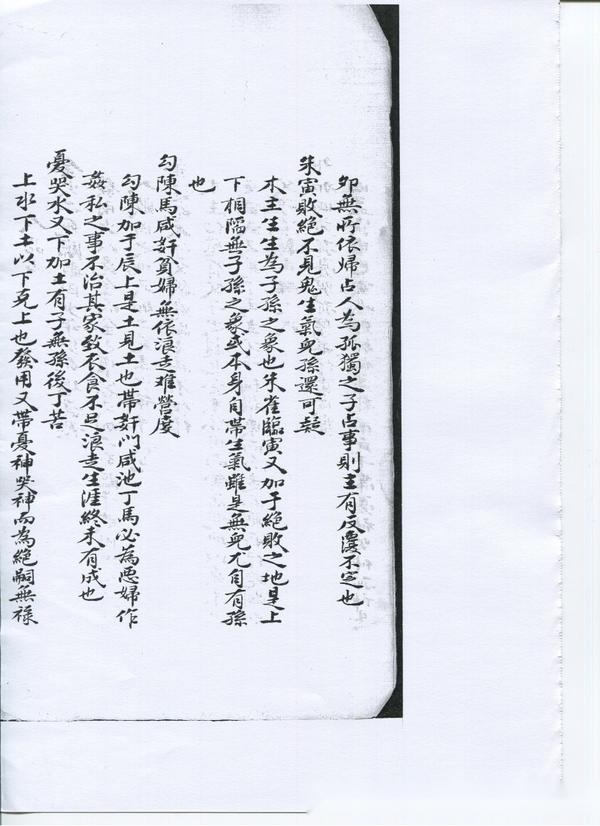 卯無所依歸占人為孤獨之子占事則主有反覆不定也
朱寅敗絕不見鬼生氣兒孫還可疑
木主生生為子孫之象也朱雀臨寅又加于絕敗之地是上
下相隔無子孫之象或本身自帶生氣雖是無兒尤自有孫
也
勾陳馬咸奸貧婦無依浪走难營度
勾陳加于辰上是土見土也帶奸门咸池丁馬必為惡婦作
姦私之事不治其家致衣食不足浪走生涯終未有成也
憂哭水又下加土有子無孫後丁苦
上水下土以下克上也發用又帶憂神哭神而為絕嗣無祿